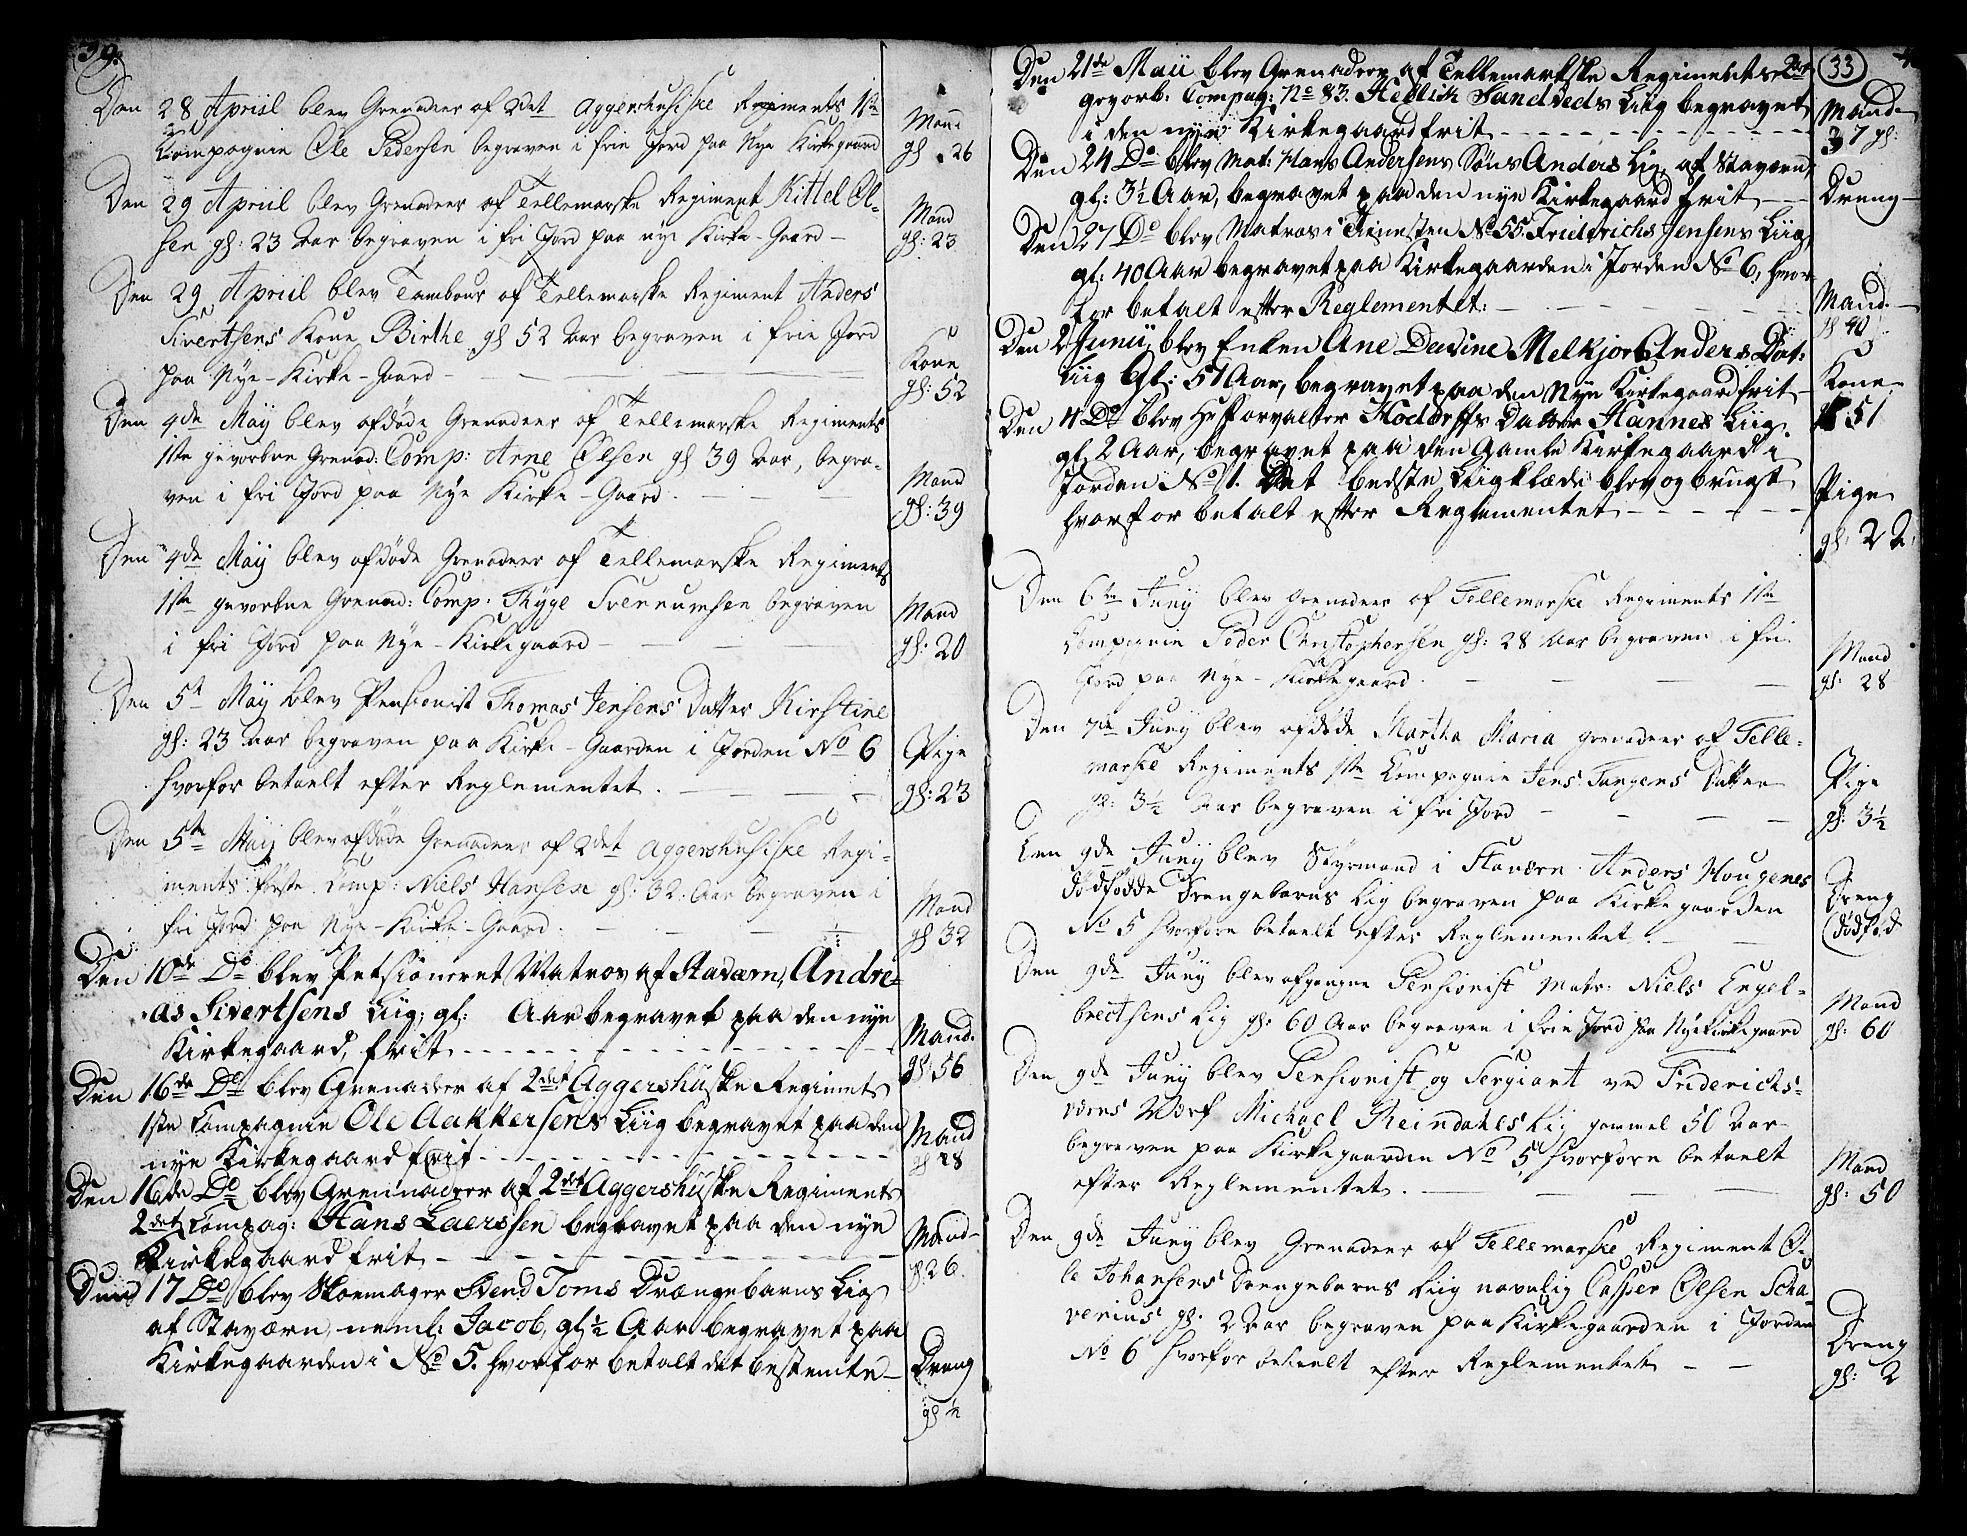 39.
Den 28 Apriil blev Grenadeer af 2det Aggershusiske Regiments 1ste
Compagnie Ole Pedersen begraven i frie Jord paa Nye Kirkegaard
Mand
gl. 26
Den 29 Apriil blev Grenadeer af Tellemarske Regiment Kittel Ol-
sen gl: 23 Aar begraven i fri Jord paa nye Kirke-Gaard-
Mand
gl: 23
Den 29 Apriil blev Tambour af Tellemarske Regiment Anders
Sivertsens Kone Birthe gl 52 Aar begraven i frie Jord
paa Nye-Kirke-Gaard
Kone
gl: 52
Den 4de Maÿ blev afdøde Grenadeer af Tellemarske Regiments
1ste gevorbne Grenad: Comp: Arne Olsen gl 39 Aar, begra-
ven i fri Jord paa Nye Kirke-Gaard.
Mand
gl: 39
Den 4de Maÿ blev afdøde Grenadeer af Tellemarske Regiments
1ste gevorbne Grenad: Comp: Thyge Svennumsen begraven
i fri Jord paa Nye-Kirkegaard
Mand
gl: 20
Den 5te Maÿ blev Pensionist Thomas Jensens Datter Kirstine
gl: 23 Aar begraven paa Kirke-Gaarden i Jorden No 6
hvorfor betaelt efter Reglementet.
Pige
gl: 23
Den 5te Maÿ blev afdøde Grenadeer af 2det Aggershusiske Regi-
ments første Comp: Niels Hansen gl: 32. Aar begraven i
fri Jord paa Nye-Kirke-Gaard.
Mand
gl 32
Den 10de Do blev Petsioneret Matros af Staværn, Andre=
as Sivertsens Liig, gl: Aar begravet paa den nye
Kirkegaard, frit
Mand.
gl: 56
Den 16de Do blev Grenadeer af 2det Aggershuske Regimets
1ste Compagnie Ole Aakkersens Liig begravet paa den
nye Kirkegaard frit
Mand
gl 28
Den 16de Do blev Grennadeer af 2det Aggershuske Regiments
2det Compag: Hans Laerssen begravet paa den nye
Kirkegaard frit
Mand
gl 26.
Den 17 Do blev Skoemager Svend Toms Drængebarns Lig
af Staværn, neml: Jacob, gl ½ Aar begravet paa
Kirkegaarden i No 5. hvorfor betalt det bestemte
Dreng
gl ½
33
Den 21de Maii blev Grenadeer af Tellemarkske Regimentes 2det
gevorb: Compag: No 83. Hellik Sandveds Liig begravet
i den nye Kirkegaard frit
Mand
37 gl:
Den 24 Do blev Mat: Hans Andersens Søns Anders Lig, af Staværn,
gl: 3½ Aar, begravet paa den nye Kirkegaard frit
Dreng
Den 27 Do blev Matros i Tienesten No 55. Friderichs Jensens Liig,
gl: 40 Aar begravet paa Kirkegaarden i Jorden No 6, hvor
for betalt efter Reglementet:
Mand.
gl 40
Den 2 Junii blev Enken Ane Devine Melkjor Anders Dat:
Liig Gl: 51 Aar, begravet paa den Nye Kirkegaard frit
Kone
51
Den 4 Do blev Husforvalter Hoddorffs Datter Hannes Liig
gl. 2 Aar, begravet paa den Gamle Kirkegaard i
Jorden No 1. Det bedste Liigklæde blev og brugt
hvorfor betalt efter Reglementet
Pige
gl: 2
Den 6te Junÿ blev Grenadeer af Tellemarske Regiments 1ste
Compagnie Peder Christophersen gl: 28 Aar begraven i fri
Jord paa Nye-Kirkegaard.
Mand
gl: 28
Den 7de Junÿ blev afdøde Martha Maria Grenadeer af Telle-
marske Regiments 1ste Compagnie Jens Tangens Datter
gl: 3½ Aar begraven i fri Jord
Pige
gl: 3½
Den 9de Junÿ blev Styrmand i Staværn Anders Hougenes
dødfødde Drengebarns Lig begraven paa Kirkegaarden
No 5 hvorføre betaelt efter Reglementet.
Dreng
dødfød
Den 9de Junÿ blev afgangne Pensionist Matr: Niels Engel-
brectsens Lig gl: 60 Aar begraven i frie Jord paa Nye Kirkegaard
Mand
gl: 60
Den 9de Junÿ blev Pensionist og Sergiant ved Friderichs-
værns Værf Michael Reindahls Lig gammel 50 Aar
begraven paa Kirkegaarden No 5 hvorføre betaelt
efter Reglementet.
Mand
gl: 50
Den 9de Junÿ blev Grenadeer af Tellemarske Regiment O-
le Johansens Drengebarns Liig navnlig Casper Olsen Scha-
verius gl: 2 Aar begraven paa Kirkegaarden i Jorden
No 6 hvorfor betaelt efter Reglementet
Dreng
gl: 2